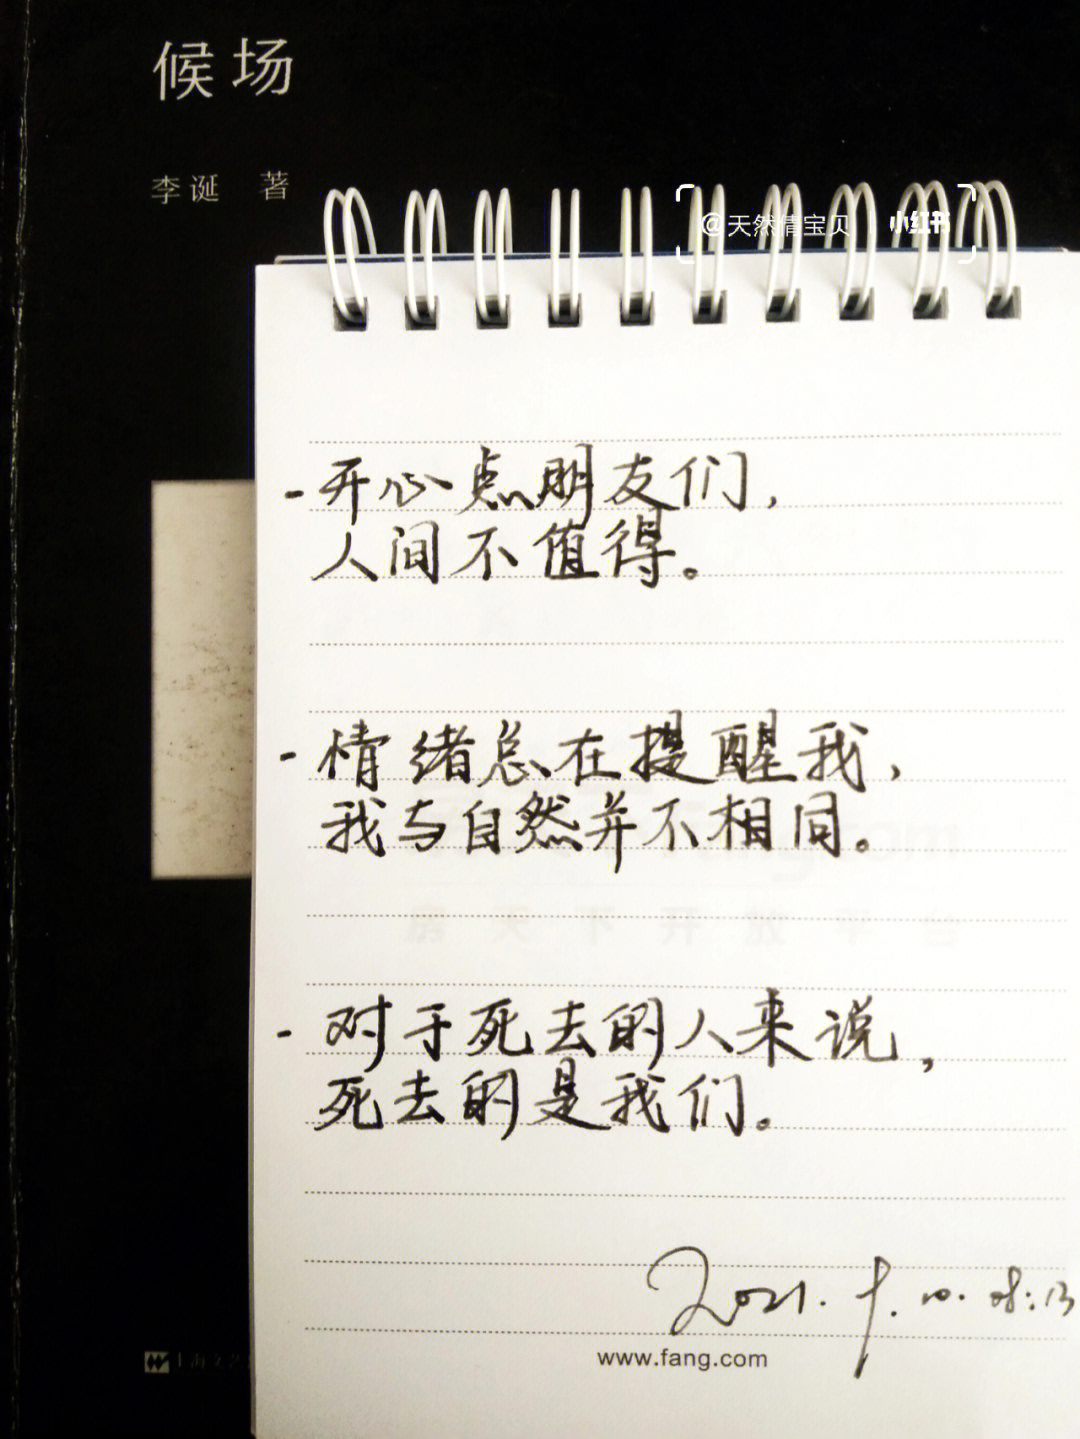 候场
李诞 著
@天然倩宝贝 | 小红书
-开心点朋友们,
人间不值得。
-情绪总在提醒我,
我与自然并不相同。
-对于死去的人来说,
死去的是我们。
2021.
www.fang.com
上海文艺